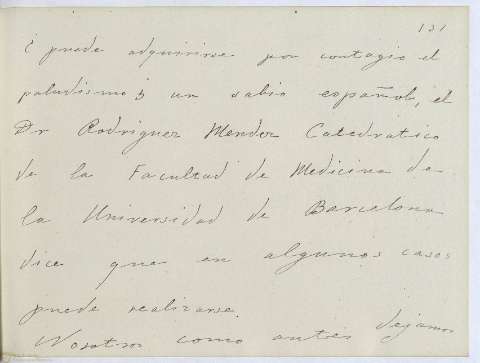 131
¿ puede adquirirse por contagio el
paludismo? un sabio español, el
Dr Rodriguez Mendez Catedratico
de la Facultad de Medicina de
la Universidad de Barcelona
dice que en algunos casos
puede realizarse.
Nosotros como antes dejamos